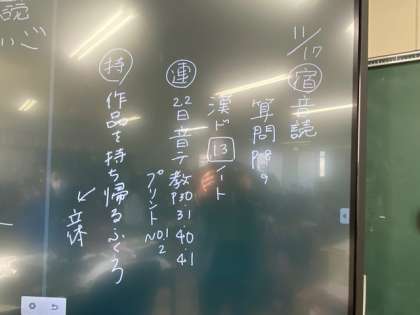 11/17
宿 音読
算問P8
9
漢ド 13 イト
連 22日音テ教P30
31・40・41
プリントNO1
2
持 作品を持ち帰るふくろ
立体